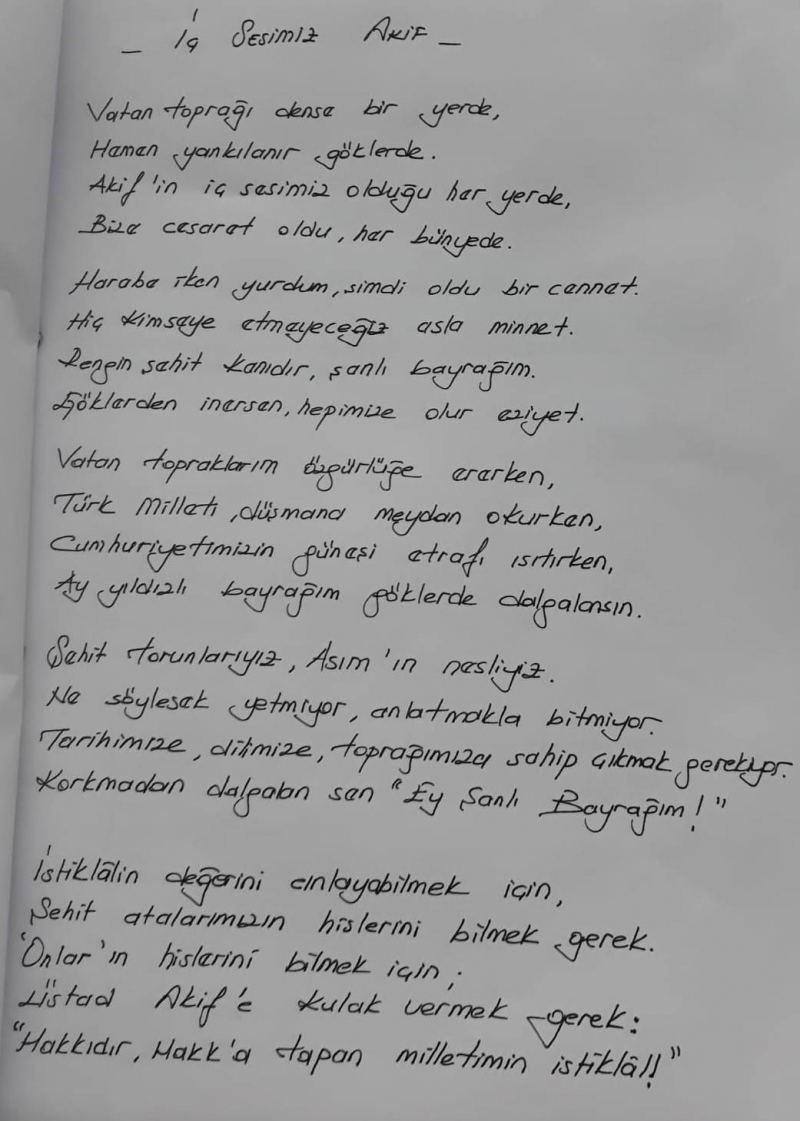 _ İç SESİMİZ AKİF _
Vatan toprağı dense bir yerde,
Hemen yankılanır göklerde.
Akif'in iç sesimiz olduğu her yerde,
Bize cesaret oldu, her bünyede.
Harabe iken yurdum, simdi oldu bir cennet.
Hiç kimseye etmeyeceğiz asla minnet.
Rengin şehit kanıdır, şanlı bayrağım.
Göklerden inersen, hepimize olur eziyet.
Vatan topraklarım özgürlüğe ererken,
Türk Milleti, düşmana meydan okurken,
Cumhuriyetimizin güneşi etrafı ısıtırken,
Ay yıldızlı bayrağım göklerde dalgalansın.
Şehit torunlarıyız, Asım'ın nesliyiz.
Ne söylesek yetmiyor, anlatmakla bitmiyor.
Tarihimize, dilimize, toprağımıza sahip çıkmak gerekiyor.
Korkmadan dalgalan sen "Ey Şanlı Bayrağım!"
İstiklâlin değerini anlayabilmek için,
Şehit atalarımızın hislerini bilmek gerek.
'Onlar'ın hislerini bilmek için;
Üstad Akif'e kulak vermek gerek:
"Hakkıdır, Hakk'a tapan milletimin istiklâl!"